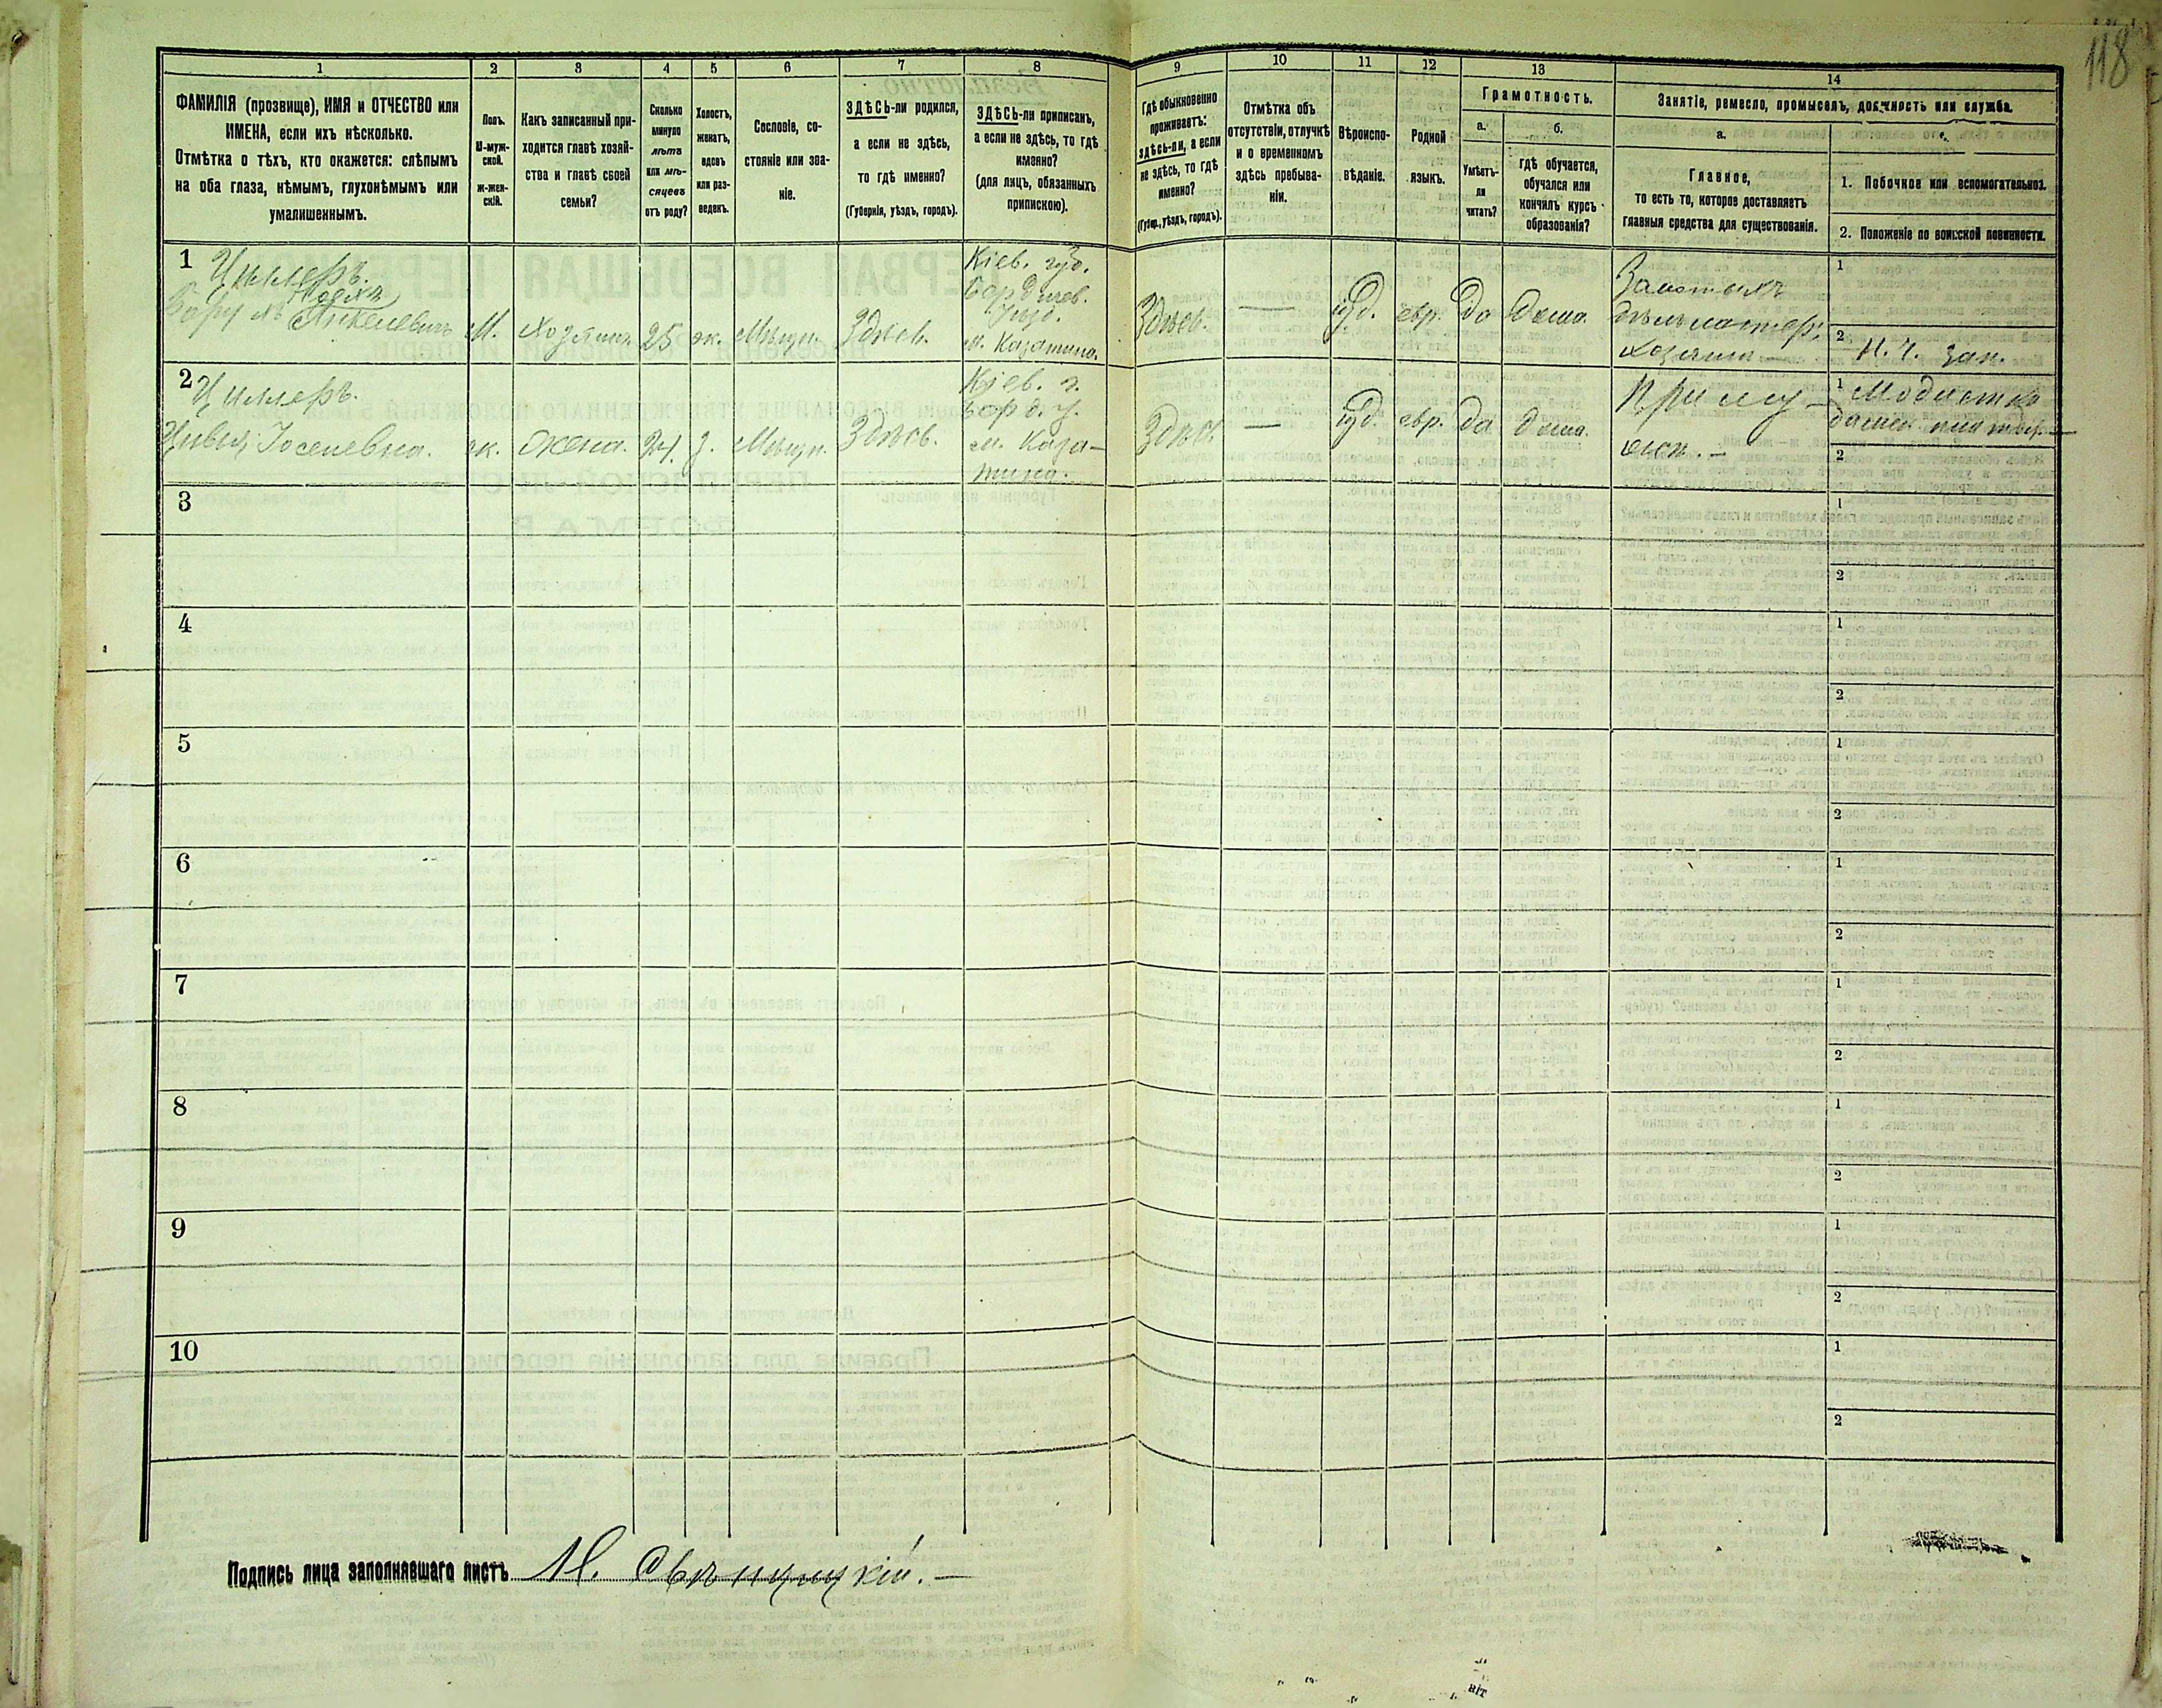 118
1 2 3 4 5 6 7 8 9 10 11 12 13 14
ФАМИЛІЯ (прозвище), ИМЯ и ОТЧЕСТВО или
ИМЕНА, если ихъ нѣсколько.
Отмѣтка о тѣхъ, кто окажется: слѣпымъ
на оба глаза, нѣмымъ, глухонѣмымъ или
умалишеннымъ.
Полъ.
М-муж-
ской.
ж-жен-
скій.
Какъ записанный при-
ходится главѣ хозяй-
ства и главѣ своей
семьи?
Сколько
минуло
лѣтъ
или мѣ-
сяцевъ
отъ роду?
Холостъ,
женатъ,
вдовъ
или раз-
веденъ.
Сословіе, со-
стояніе или зва-
ніе.
ЗДѢСЬ-ли родился,
а если не здѣсь,
то гдѣ именно?
(Губернія, уѣздъ, городъ).
ЗДѢСЬ-ли приписанъ,
а если не здѣсь, то гдѣ
именно?
(для лицъ, обязанныхъ
припискою).
Гдѣ обыкновенно
проживаетъ:
здѣсь-ли, а если
не здѣсь, то гдѣ
именно?
(Губер., уѣздъ, городъ).
Отмѣтка объ
отсутствіи, отлучкѣ
и о временномъ
здѣсь пребыва-
ніи.
Вѣроиспо-
вѣданіе.
Родной
языкъ.
Грамотность.
а.
Умѣетъ-
ли
читать?
б.
гдѣ обучается,
обучался или
кончилъ курсъ
образованія?
Занятіе, ремесло, промыселъ, должность или служба.
а.
Главное,
то есть то, которое доставляетъ
главныя средства для существованія.
1. Побочное или вспомогательное.
2. Положеніе по воинской повинности.
1 Циммеръ.
М. Хозяинъ 25 ж. Мѣщ. Здѣсь.
Кіев. губ.
Бердичев.
уѣзд.
м. Казатина.
Здѣсь. — іуд. евр. да дома.
хозяинъ —
1
2
2 Циммеръ.
Цивья Іоселевна. ж. жена. 24 з. Мѣщ. Здѣсь.
Кіев. г.
Берд. у.
м. Каза-
тина.
Здѣсь. — іуд. евр. да дома.
При му-
жѣ. —
1 Модистка
дамск. платьев.
2
3 1
2
4 1
2
5 1
2
6 1
2
7 1
2
8 1
2
9 1
2
10 1
2
Подпись лица заполнявшаго листъ